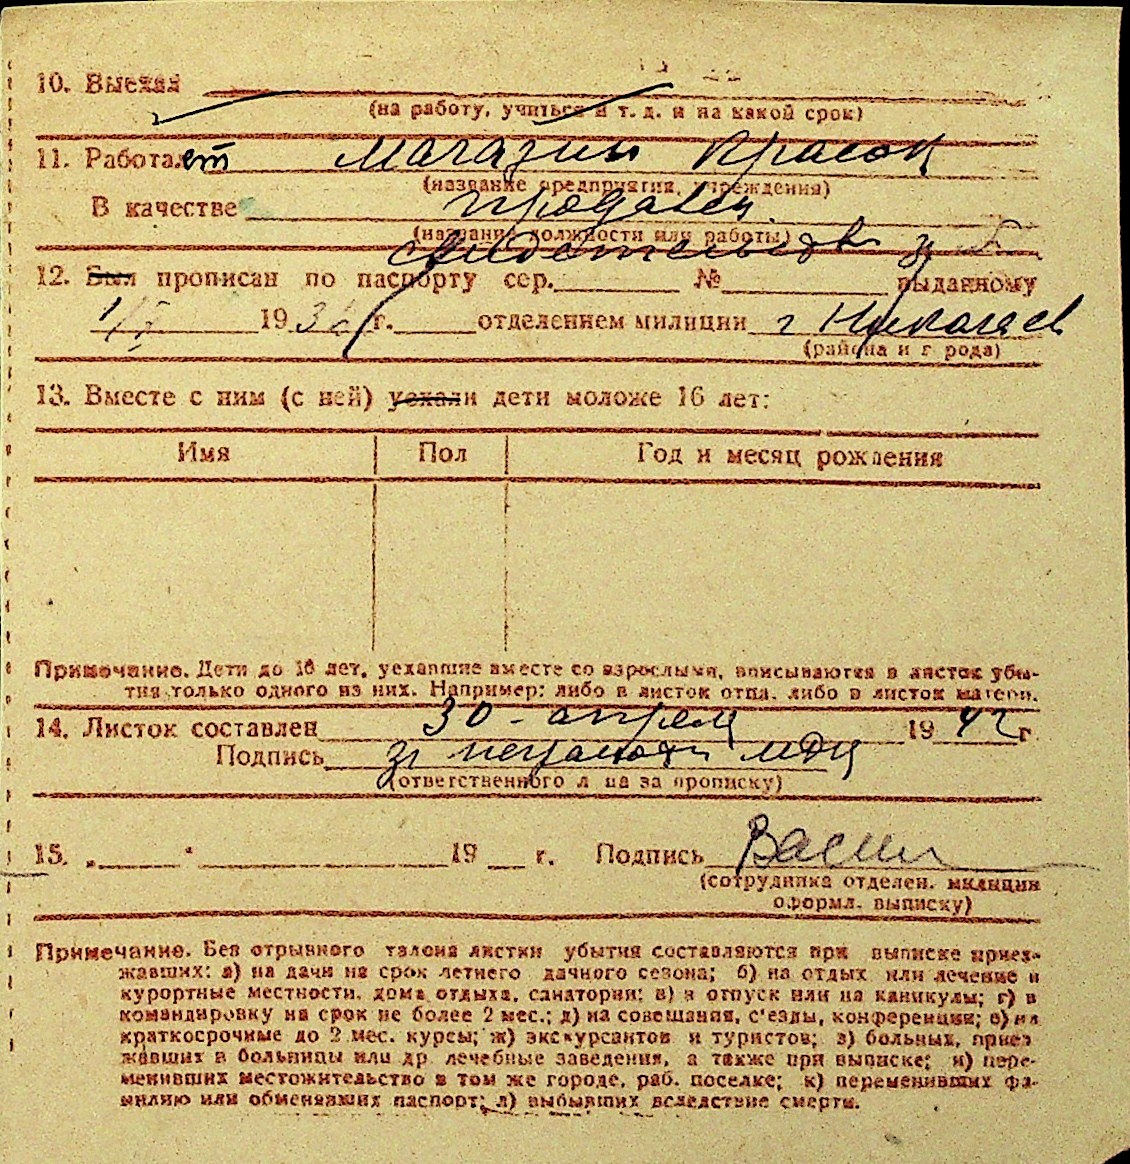 10. Выехал
(на работу, учиться и т. д. и на какой срок)
11. Работает магазин красок
(название предприятия, учреждения)
В качестве продавец
(название должности или работы)
12. Был прописан по паспорту сер. № выданному
19 г. отделением милиции г Николаев
(района и города)
13. Вместе с ним (с ней) уехали дети моложе 16 лет:
Имя Пол Год и месяц рождения
Примечание. Дети до 16 лет, уехавшие вместе со взрослыми, вписываются в листок убы-
тия только одного из них. Например: либо в листок отца, либо в листок матери.
14. Листок составлен 30 - апреля 1942 г.
Подпись
(ответственного лица за прописку)
15. „ “ 19 г. Подпись
(сотрудника отделен. милиции
оформл. выписку)
Примечание. Без отрывного талона листки убытия составляются при выписке приез-
жавших: а) на дачи на срок летнего дачного сезона; б) на отдых или лечение в
курортные местности, дома отдыха, санатории; в) в отпуск или на каникулы; г) в
командировку на срок не более 2 мес.; д) на совещания, с'езды, конференции; е) на
краткосрочные до 2 мес. курсы; ж) экскурсантов и туристов; з) больных, приез
жавших в больницы или др. лечебные заведения, а также при выписке; и) пере-
менивших местожительство в том же городе, раб. поселке; к) переменивших фа-
милию или обменявших паспорт; л) выбывших вследствие смерти.